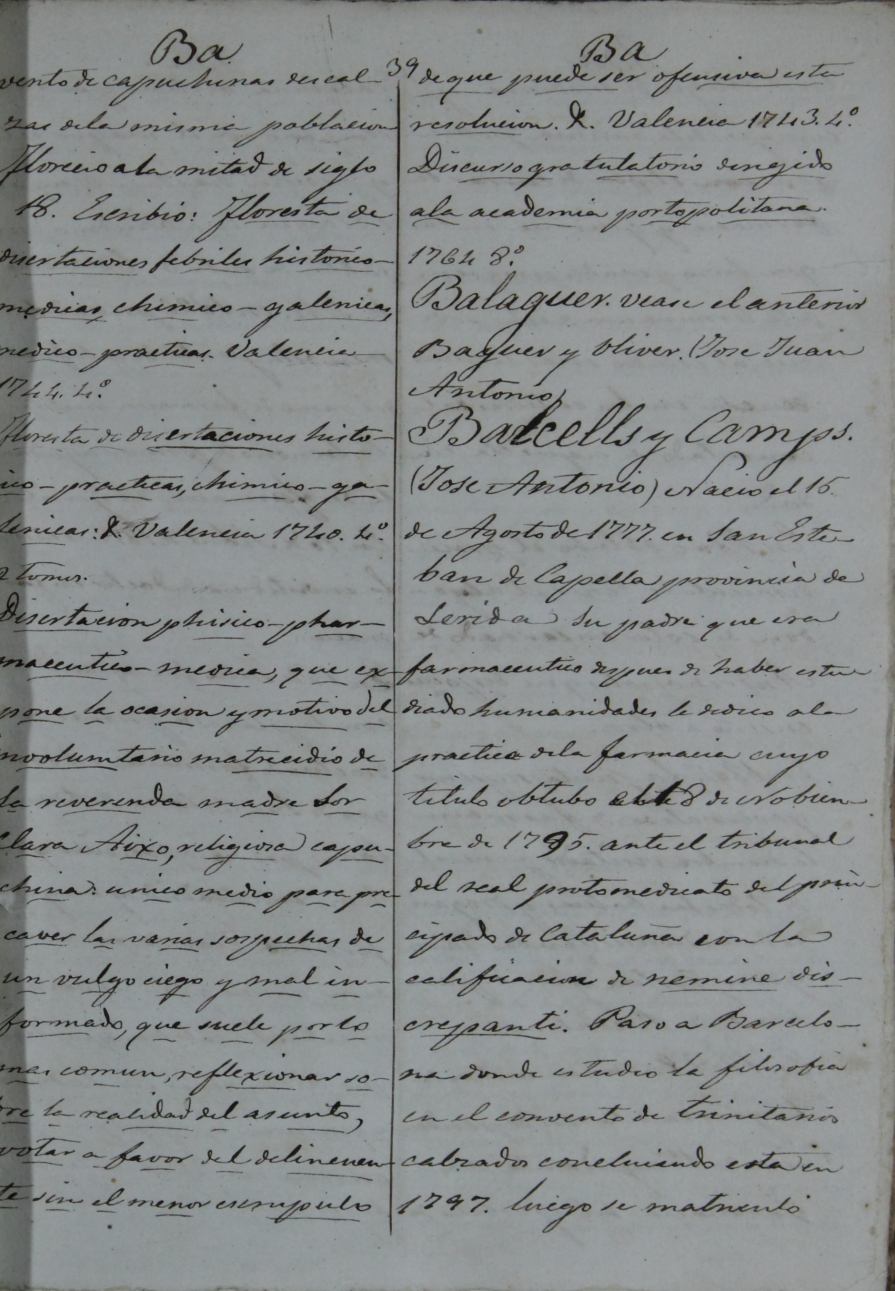 Ba
39
vento de capuchinas descal-
zas dela misma poblacion
Florecio a la mitad de siglo
18. Escribio: Floresta de
disertaciones febriles historico-
medicas, chimico-galenicas,
medico-practicas. Valencia
1744. 4.º
Floresta de disertaciones histo-
ico-practicas, chimico-ga-
lenicas: &. Valencia 1740. 4.º
2 tomos.
Disertacion phisico-phar-
maceutico-medica, que ex-
pone la ocasion y motivo del
involuntario matricidio de
la reverenda madre Sor
Clara Aixo, religiosa capu-
china: unico medio para pre-
caver las varias sospechas de
un vulgo ciego y mal in-
formado, que suele por lo
mas comun, reflexionar so-
bre la realidad del asunto,
votar a favor del delincuen-
te sin el menor escrupulo
Ba
de que puede ser ofensiva esta
resolucion. &. Valencia 1743. 4.º
Discurso gratulatorio dirigido
ala academia portopolitana.
1764 8.º
Balaguer. vease el anterior
Baguer y Oliver. (Jose Juan
Antonio)
Balcells y Camps.
(Jose Antonio) Nacio el 16
de Agosto de 1777. en San Este-
ban de Capella provincia de
Lerida Su padre que era
farmaceutico despues de haber estu-
diado humanidades le dedico ala
practica dela farmacia cuyo
titulo obtubo el 8 de Nobiem-
bre de 1795. ante el tribunal
del real protomedicato del prin-
cipado de Cataluña con la
calificacion de nemine dis-
crepanti. Paso a Barcelo-
na donde estudio la filosofia
en el convento de trinitarios
calzados concluiendo esta en
1797. luego se matriculó